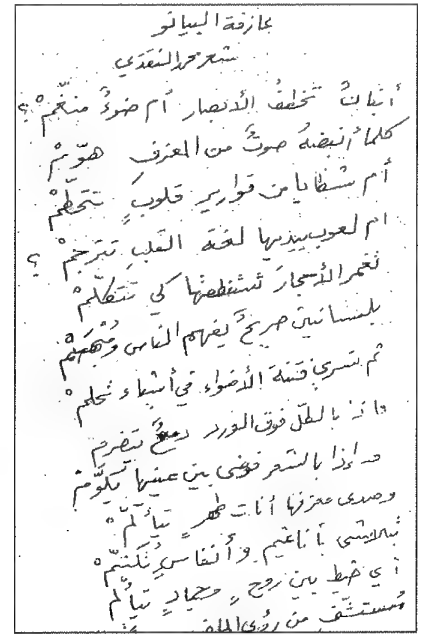 عازفة البيانو
شعر محمد النقدي
أبنانٌ تخطفُ الأبصار أم ضوءٌ منغّمْ ؟
كلما أنبضهُ صوتٌ من المعزفِ هوّمْ
أم شظايا من قوارير قلوبٍ تتحطّمْ
أم لعوب بيديها لغة القلبِ تترجمْ ؟
تغمر الأحجارَ تستنطقها كي تتكلّمْ
بلسانين صريحٌ يفهم الناس ومُبْهَمْ
ثم تسري فتنة الأضواء في أشياء تحلمْ
فاذا بالطلّ فوق الورد يتضرم
واذا بالشعر فوضى بين عينيها تكوّمْ
وصدى معزفها أنات طهرٍ تيألّمْ
تتلاشى بأناغيم وأنفاسٍ تكتّمْ
أي خيط بين روحٍ وجمادٍ
من رؤى